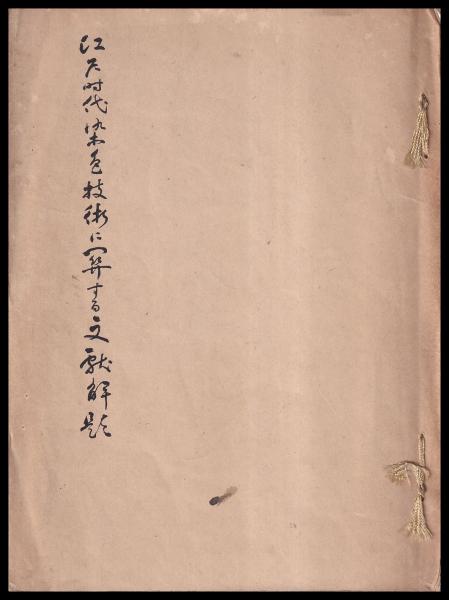 江戸時代染色技術に関する文献解題